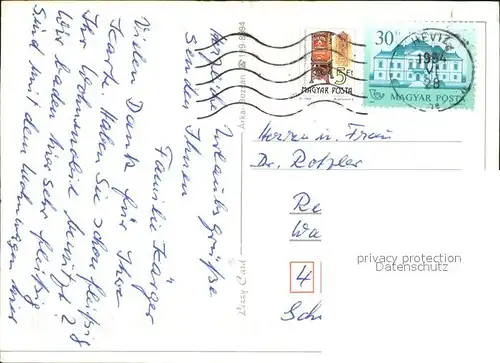 Vielen Dank für Ihre
Karte. Haben Sie schon fleißig
Ihr Wohnmobil benützt?
Wir baden hier sehr fleißig
sind mit dem Wohnwagen hier
Herzliche Urlaubsgrüße
sendet Ihnen
Familie Karger
30 Ft
5 Ft
MAGYAR POSTA
MAGYAR POSTA
HÉVÍZ
1994
28
Herrn u. Frau
Dr. Rotzler
Re
Wa
4
Sch
privacy protection
Datenschutz